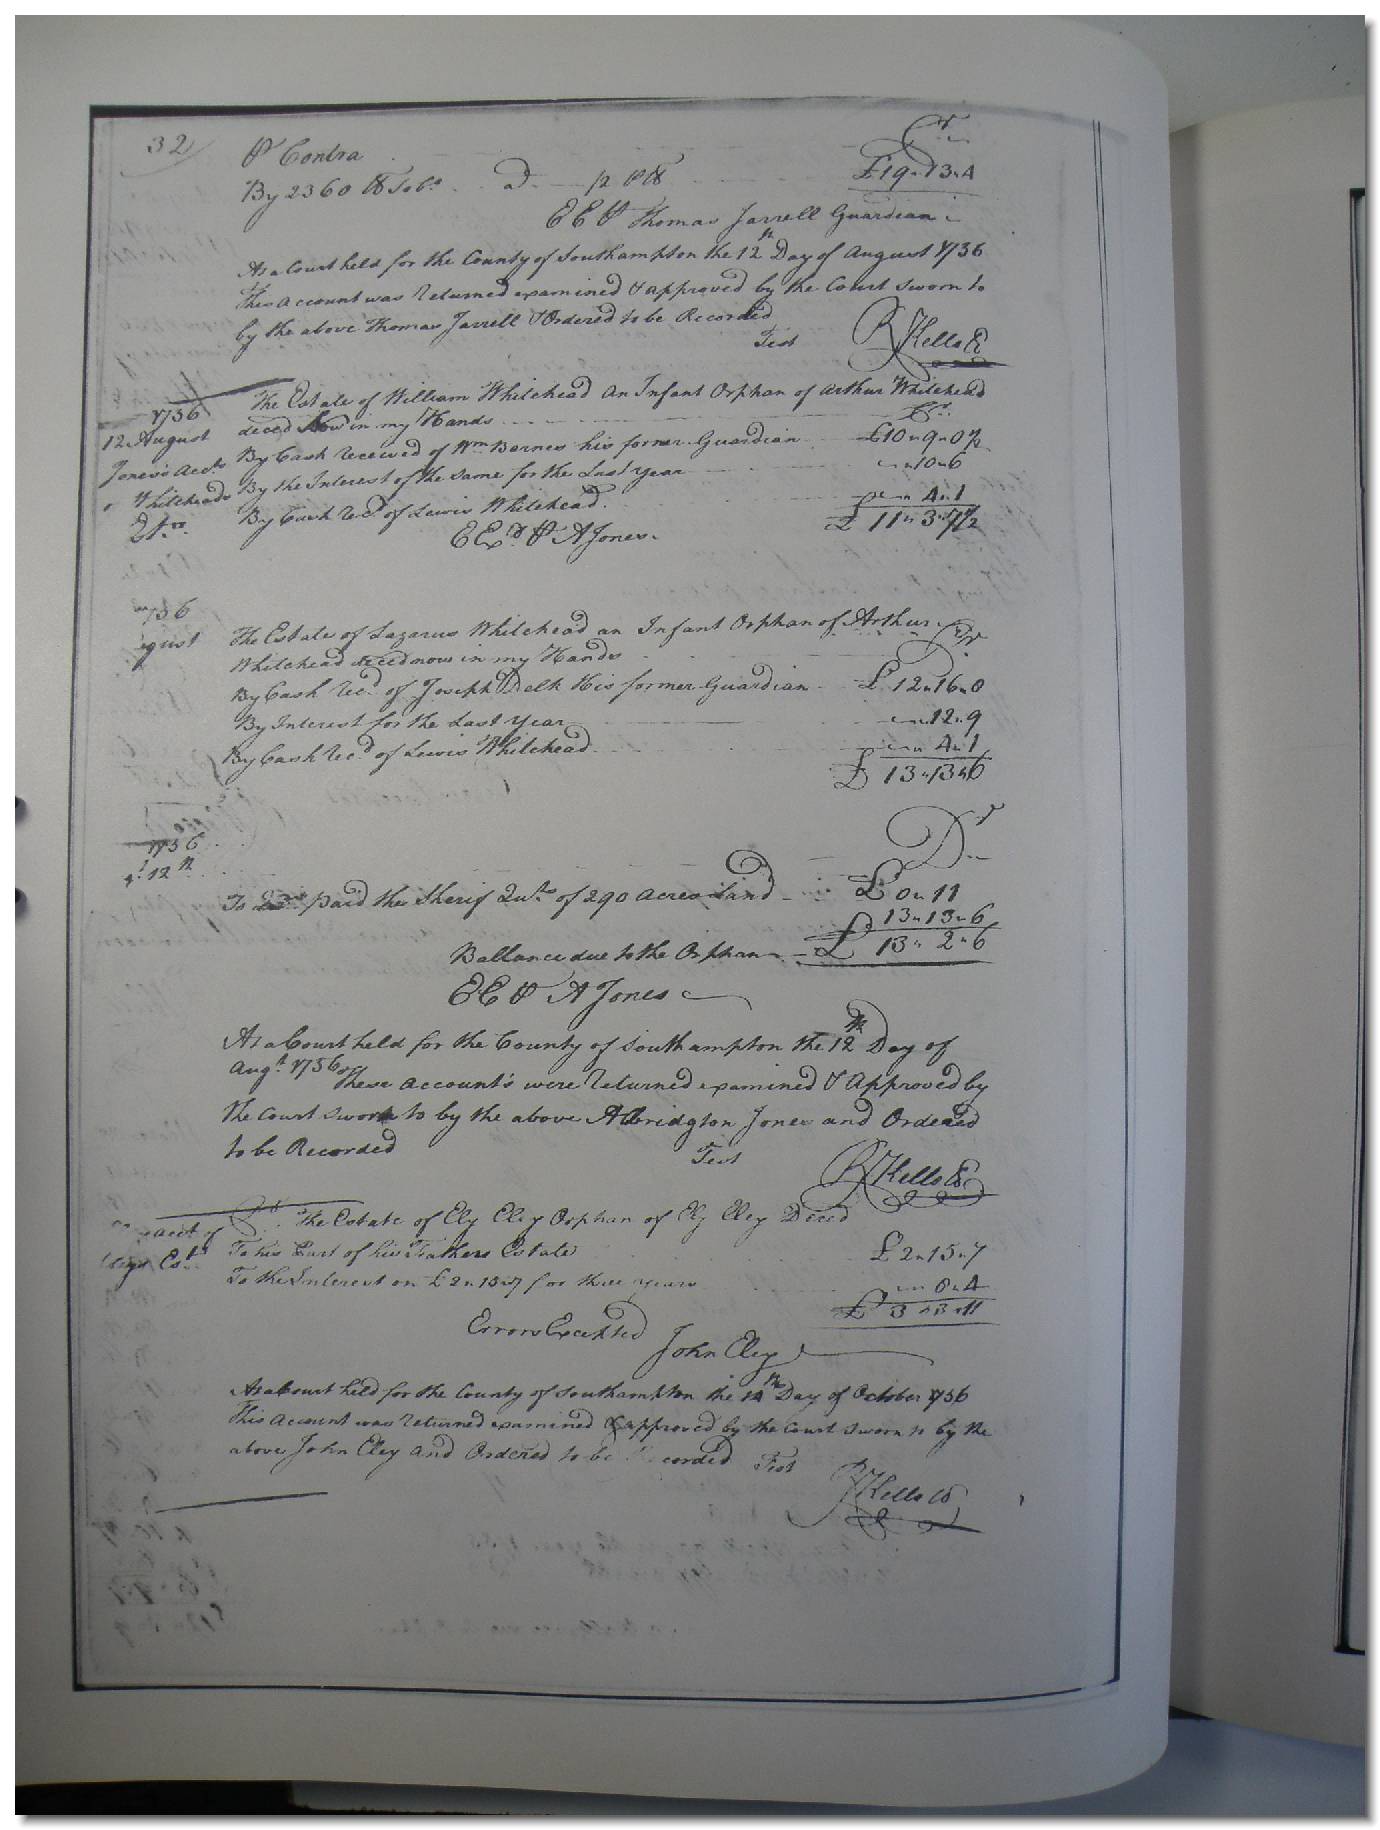 32
⅌ Contra Cr
By 2360 ℔ Tobo. a d. /2 ⅌ ℔ £19"13"4
E E ⅌ Thomas Jarrell Guardian
At a Court held for the County of Southampton the 12th Day of August 1756
This account was Returned examined & approved by the Court sworn to
by the above Thomas Jarrell & Ordered to be Recorded
Test R Kello
1756
12 August
Jones's acct
Whiteheads
The Estate of William Whitehead An Infant Orphan of Arthur Whitehead
deced Now in my Hands Cr.
By Cash received of Wm. Barnes his former Guardian £10"9"0½
By the Interest of the same for the Last year "10"6
By Cash Recd. of Lewis Whitehead. " 4"1
£ 11"3"7½
E Exd. ⅌ A Jones.
1756
gust
The Estate of Lazarus Whitehead an Infant Orphan of Arthur Cr
Whitehead deced now in my Hands
By Cash Recd. of Joseph Delk His former Guardian £ 12"16"0
By Interest for the Last year "12"9
By Cash Recd. of Lewis Whitehead " 4"1
£ 13"13"6
1756
12th
Dr
To paid the Sherif Quts. of 290 acres Land £ 0"11
13"13"6
Ballance due to the Orphan £ 13" 2"6
E E ⅌ A Jones
At a Court held for the County of Southampton the 12th Day of
Augt. 1756
These account's were Returned examined & Approved by
the Court sworn to by the above Albridgton Jones and Ordered
to be Recorded
Test R Kello
acct of
Est.
The Estate of Ely Eley Orphan of Ely Eley Deced
To his Part of his Fathers Estate £2"15"7
To the Interest on £2"15"7 for three years " 8"4
£ 3"3"11
Errors Excepted
John Eley
At a Court held for the County of Southampton the 14th Day of October 1756
This account was Returned examined & approved by the Court sworn to by the
above John Eley and Ordered to be Recorded Test
R Kello